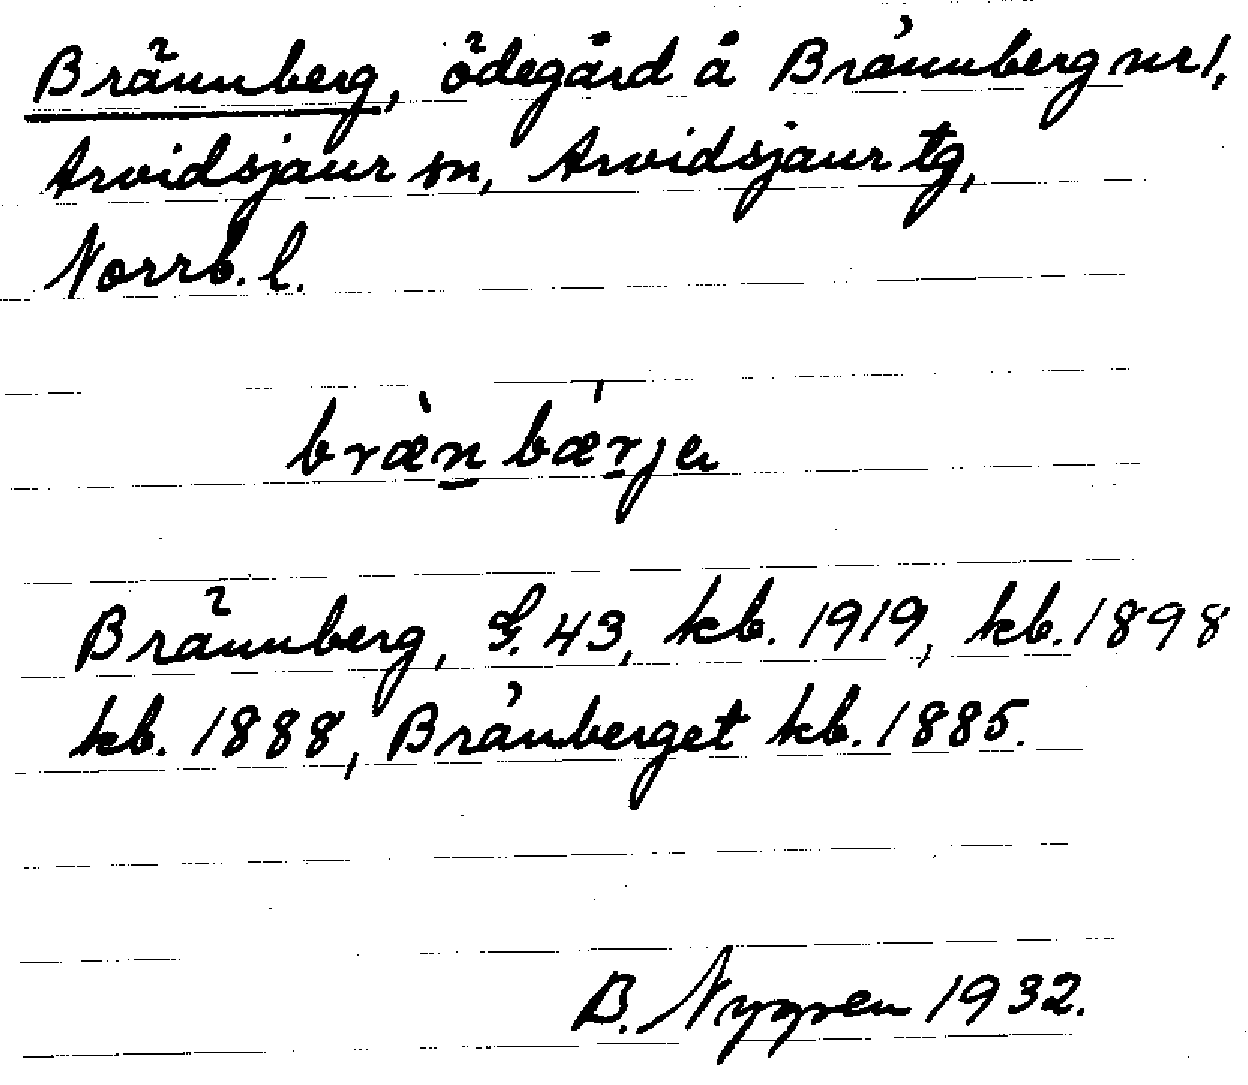 Brännberg, ödegård å Brännberg nr 1,
Arvidsjaur sn, Arvidsjaur tg,
Norrb. l.
bræ̀n bæ̀rja
Brännberg, G. 43, kb. 1919, kb. 1898
kb. 1888, Bränberget kb. 1885.
B. Nygren 1932.